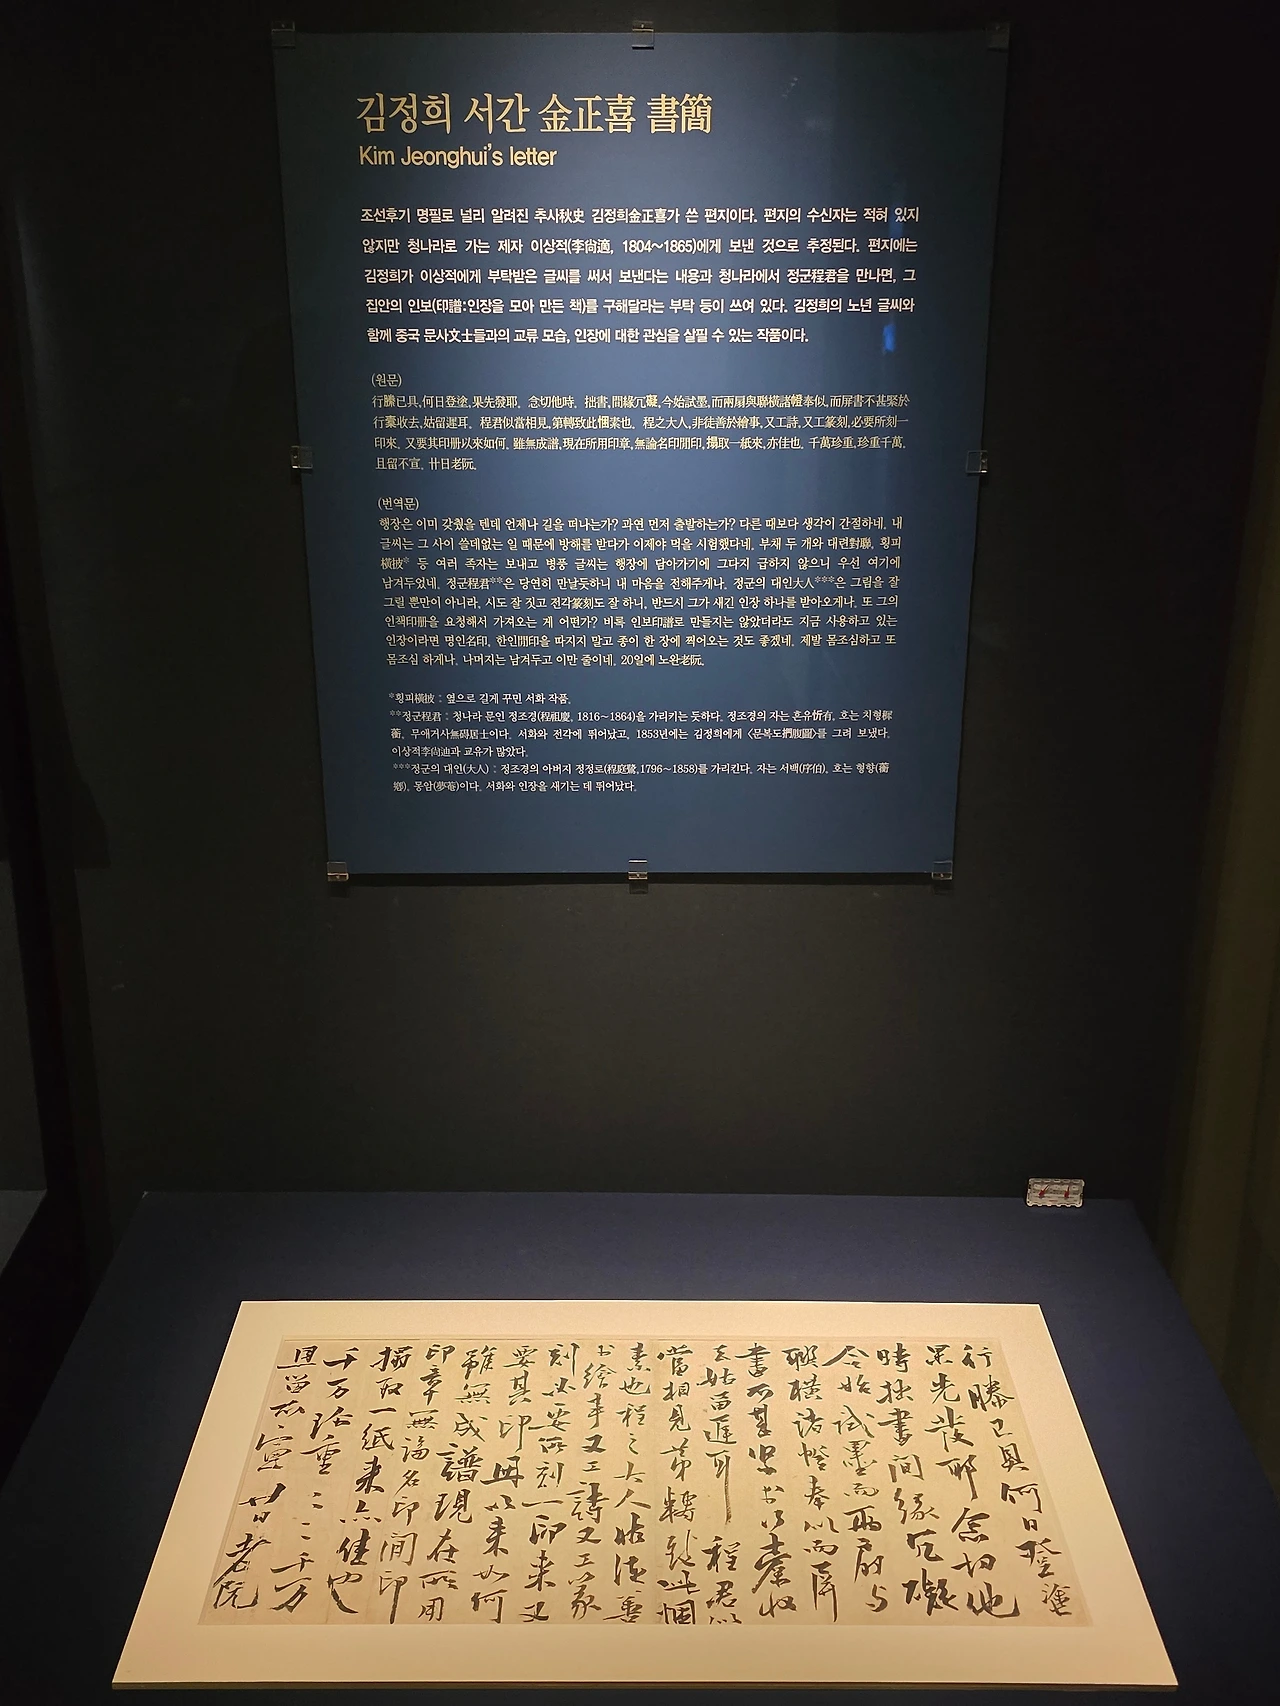 김정희 서간 金正喜 書簡
Kim Jeonghui's letter
조선후기 명필로 널리 알려진 추사秋史 김정희金正喜가 쓴 편지이다. 편지의 수신자는 적혀 있지
않지만 청나라로 가는 제자 이상적(李尙適, 1804~1865)에게 보낸 것으로 추정된다. 편지에는
김정희가 이상적에게 부탁받은 글씨를 써서 보낸다는 내용과 청나라에서 정군程君을 만나면, 그
집안의 인보(印譜:인장을 모아 만든 책)를 구해달라는 부탁 등이 쓰여 있다. 김정희의 노년 글씨와
함께 중국 문사文士들과의 교류 모습, 인장에 대한 관심을 살필 수 있는 작품이다.
(원문)
行縢已具,何日登塗,果先發耶. 念切他時. 拙書,間緣冗礙,今始試墨,而兩扇與聯橫諸㡧奉似,而屛書不甚緊於
行橐收去,姑留遲耳. 程君似當相見,第轉致此悃素也. 程之大人,非徒善於繪事,又工詩,又工篆刻,必要所刻一
印來. 又要其印冊以來如何. 雖無成譜,現在所用印章,無論名印閒印,搨取一紙來,亦佳也. 千萬珍重,珍重千萬.
且留不宣. 廿日老阮.
(번역문)
행장은 이미 갖췄을 텐데 언제나 길을 떠나는가? 과연 먼저 출발하는가? 다른 때보다 생각이 간절하네. 내
글씨는 그 사이 쓸데없는 일 때문에 방해를 받다가 이제야 먹을 시험했다네. 부채 두 개와 대련對聯, 횡피
橫披* 등 여러 족자는 보내고 병풍 글씨는 행장에 담아가기에 그다지 급하지 않으니 우선 여기에
남겨두었네. 정군程君**은 당연히 만날듯하니 내 마음을 전해주게나. 정군의 대인大人***은 그림을 잘
그릴 뿐만이 아니라, 시도 잘 짓고 전각篆刻도 잘 하니, 반드시 그가 새긴 인장 하나를 받아오게나. 또 그의
인책印冊을 요청해서 가져오는 게 어떤가? 비록 인보印譜로 만들지는 않았더라도 지금 사용하고 있는
인장이라면 명인名印, 한인閒印을 따지지 말고 종이 한 장에 찍어오는 것도 좋겠네. 제발 몸조심하고 또
몸조심 하게나. 나머지는 남겨두고 이만 줄이네. 20일에 노완老阮.
*횡피橫披 : 옆으로 길게 꾸민 서화 작품.
**정군程君 : 청나라 문인 정조경(程祖慶, 1816~1864)을 가리키는 듯하다. 정조경의 자는 흔유忻有, 호는 치형穉
蘅, 무애거사無碍居士이다. 서화와 전각에 뛰어났고, 1853년에는 김정희에게 〈문복도捫腹圖〉를 그려 보냈다.
이상적李尙迪과 교유가 많았다.
***정군의 대인(大人) : 정조경의 아버지 정정로(程庭鷺,1796~1858)를 가리킨다. 자는 서백(序伯), 호는 형향(蘅
鄕), 몽암(夢菴)이다. 서화와 인장을 새기는 데 뛰어났다.
行縢已具何日登塗
果先發耶念切他
時拙書間緣冗礙
今始試墨而兩扇与
聯橫諸㡧奉以而屛
書不甚緊於行橐收
去姑留遲耳 程君似
當相見第轉致此悃
素也程之大人非徒善
於繪事又工詩又工篆
刻必要所刻一印来又
要其印冊以来如何
雖無成譜現在所用
印章無論名印閒印
搨取一紙来亦佳也
千万珍重〻〻千万
且留不宣廿日老阮